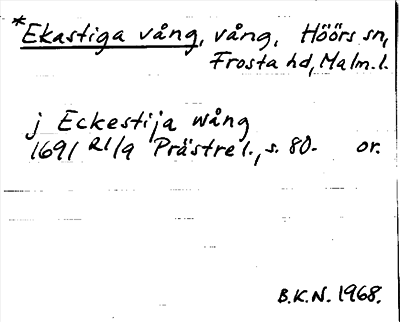 *Ekastiga vång, vång, Höörs sn,
Frosta hd, Malm. l.
j Eckestija wång
1691 21/9 Prästrel., s. 80. or.
B.K.N. 1968.